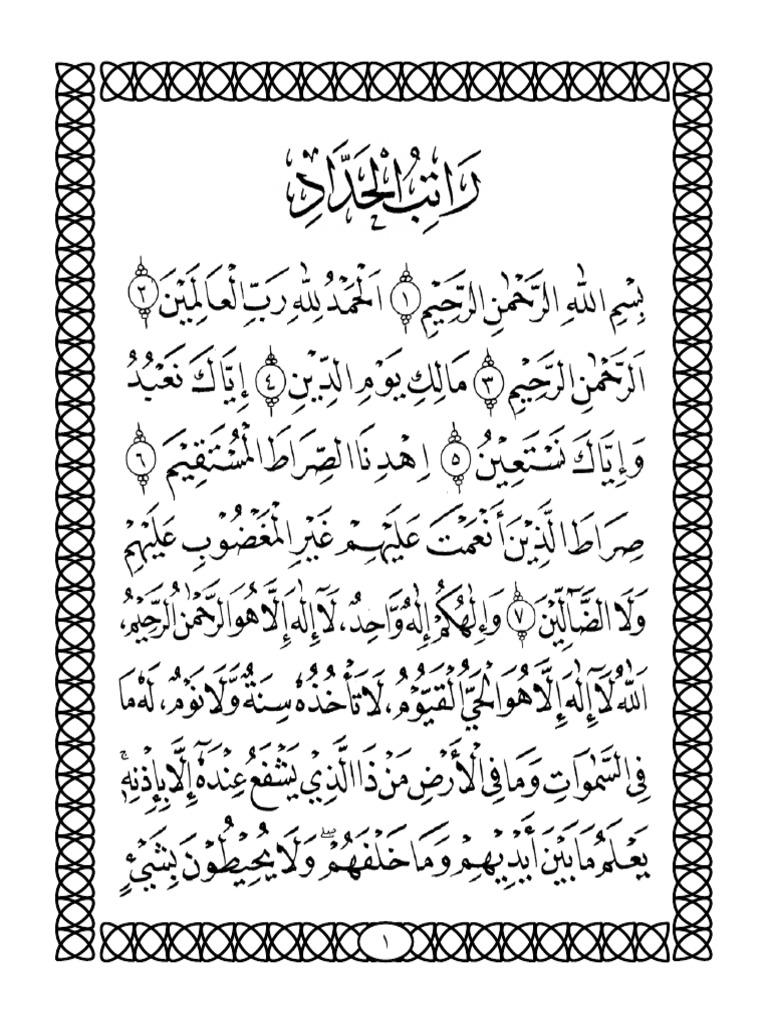 رَاتِبُ الْحَدَّادِ
بِسْمِ اللهِ الرَّحْمٰنِ الرَّحِيْمِ ١ اَلْحَمْدُ لِلّٰهِ رَبِّ الْعَالَمِيْنَ ٢
اَلرَّحْمٰنِ الرَّحِيْمِ ٣ مَالِكِ يَوْمِ الدِّيْنِ ٤ إِيَّاكَ نَعْبُدُ
وَإِيَّاكَ نَسْتَعِيْنُ ٥ اِهْدِنَا الصِّرَاطَ الْمُسْتَقِيْمَ ٦
صِرَاطَ الَّذِيْنَ أَنْعَمْتَ عَلَيْهِمْ غَيْرِ الْمَغْضُوْبِ عَلَيْهِمْ
وَلَا الضَّآلِّيْنَ ٧ وَإِلٰهُكُمْ إِلٰهٌ وَّاحِدٌ، لَآ إِلٰهَ إِلَّا هُوَ الرَّحْمٰنُ الرَّحِيْمُ،
اَللهُ لَآ إِلٰهَ إِلَّا هُوَ الْحَيُّ الْقَيُّوْمُ، لَا تَأْخُذُهُ سِنَةٌ وَّلَا نَوْمٌ، لَهُ مَا
فِي السَّمٰوَاتِ وَمَا فِي الْأَرْضِ مَنْ ذَا الَّذِيْ يَشْفَعُ عِنْدَهُ إِلَّا بِإِذْنِهِ ۚ
يَعْلَمُ مَا بَيْنَ أَيْدِيْهِمْ وَمَا خَلْفَهُمْ ۖ وَلَا يُحِيْطُوْنَ بِشَيْءٍ
١